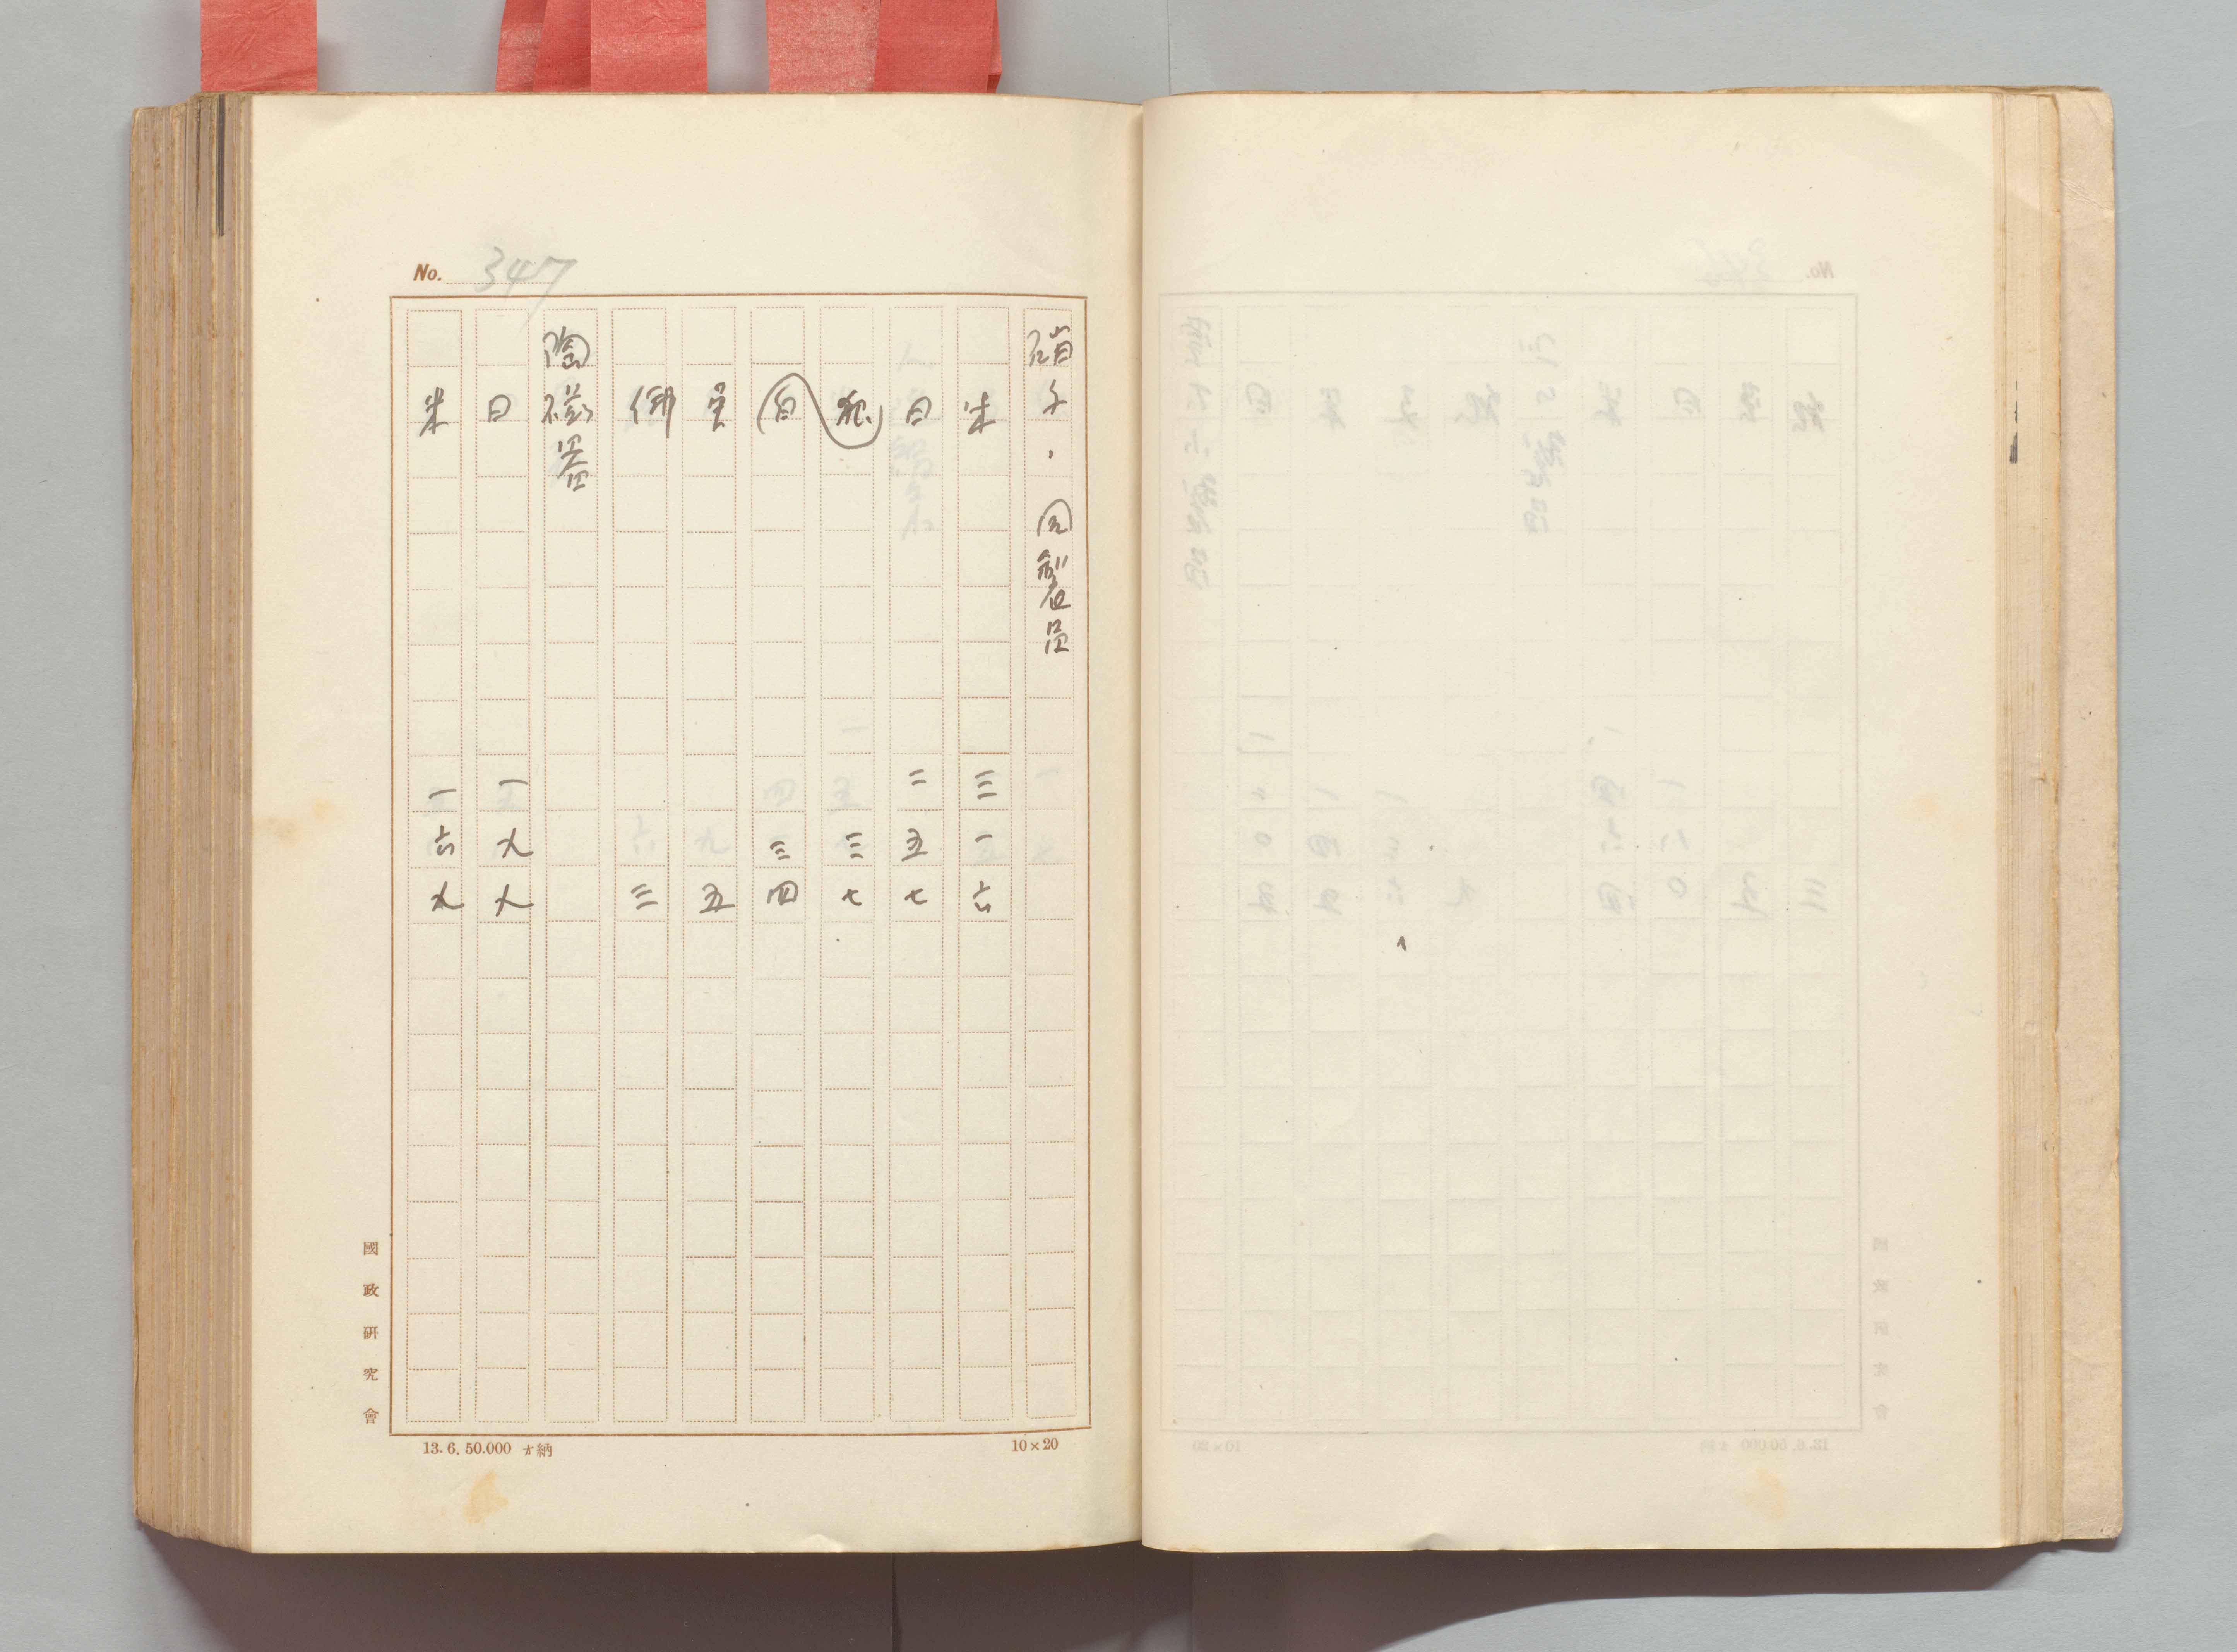 No. 347
硝子・同製品
米 三一六
日 二五七
独 三七
白 三四
五
佛 三
陶磁器
日 一九九
米 一六九
國政研究會
13. 6. 50.000 納
10×20